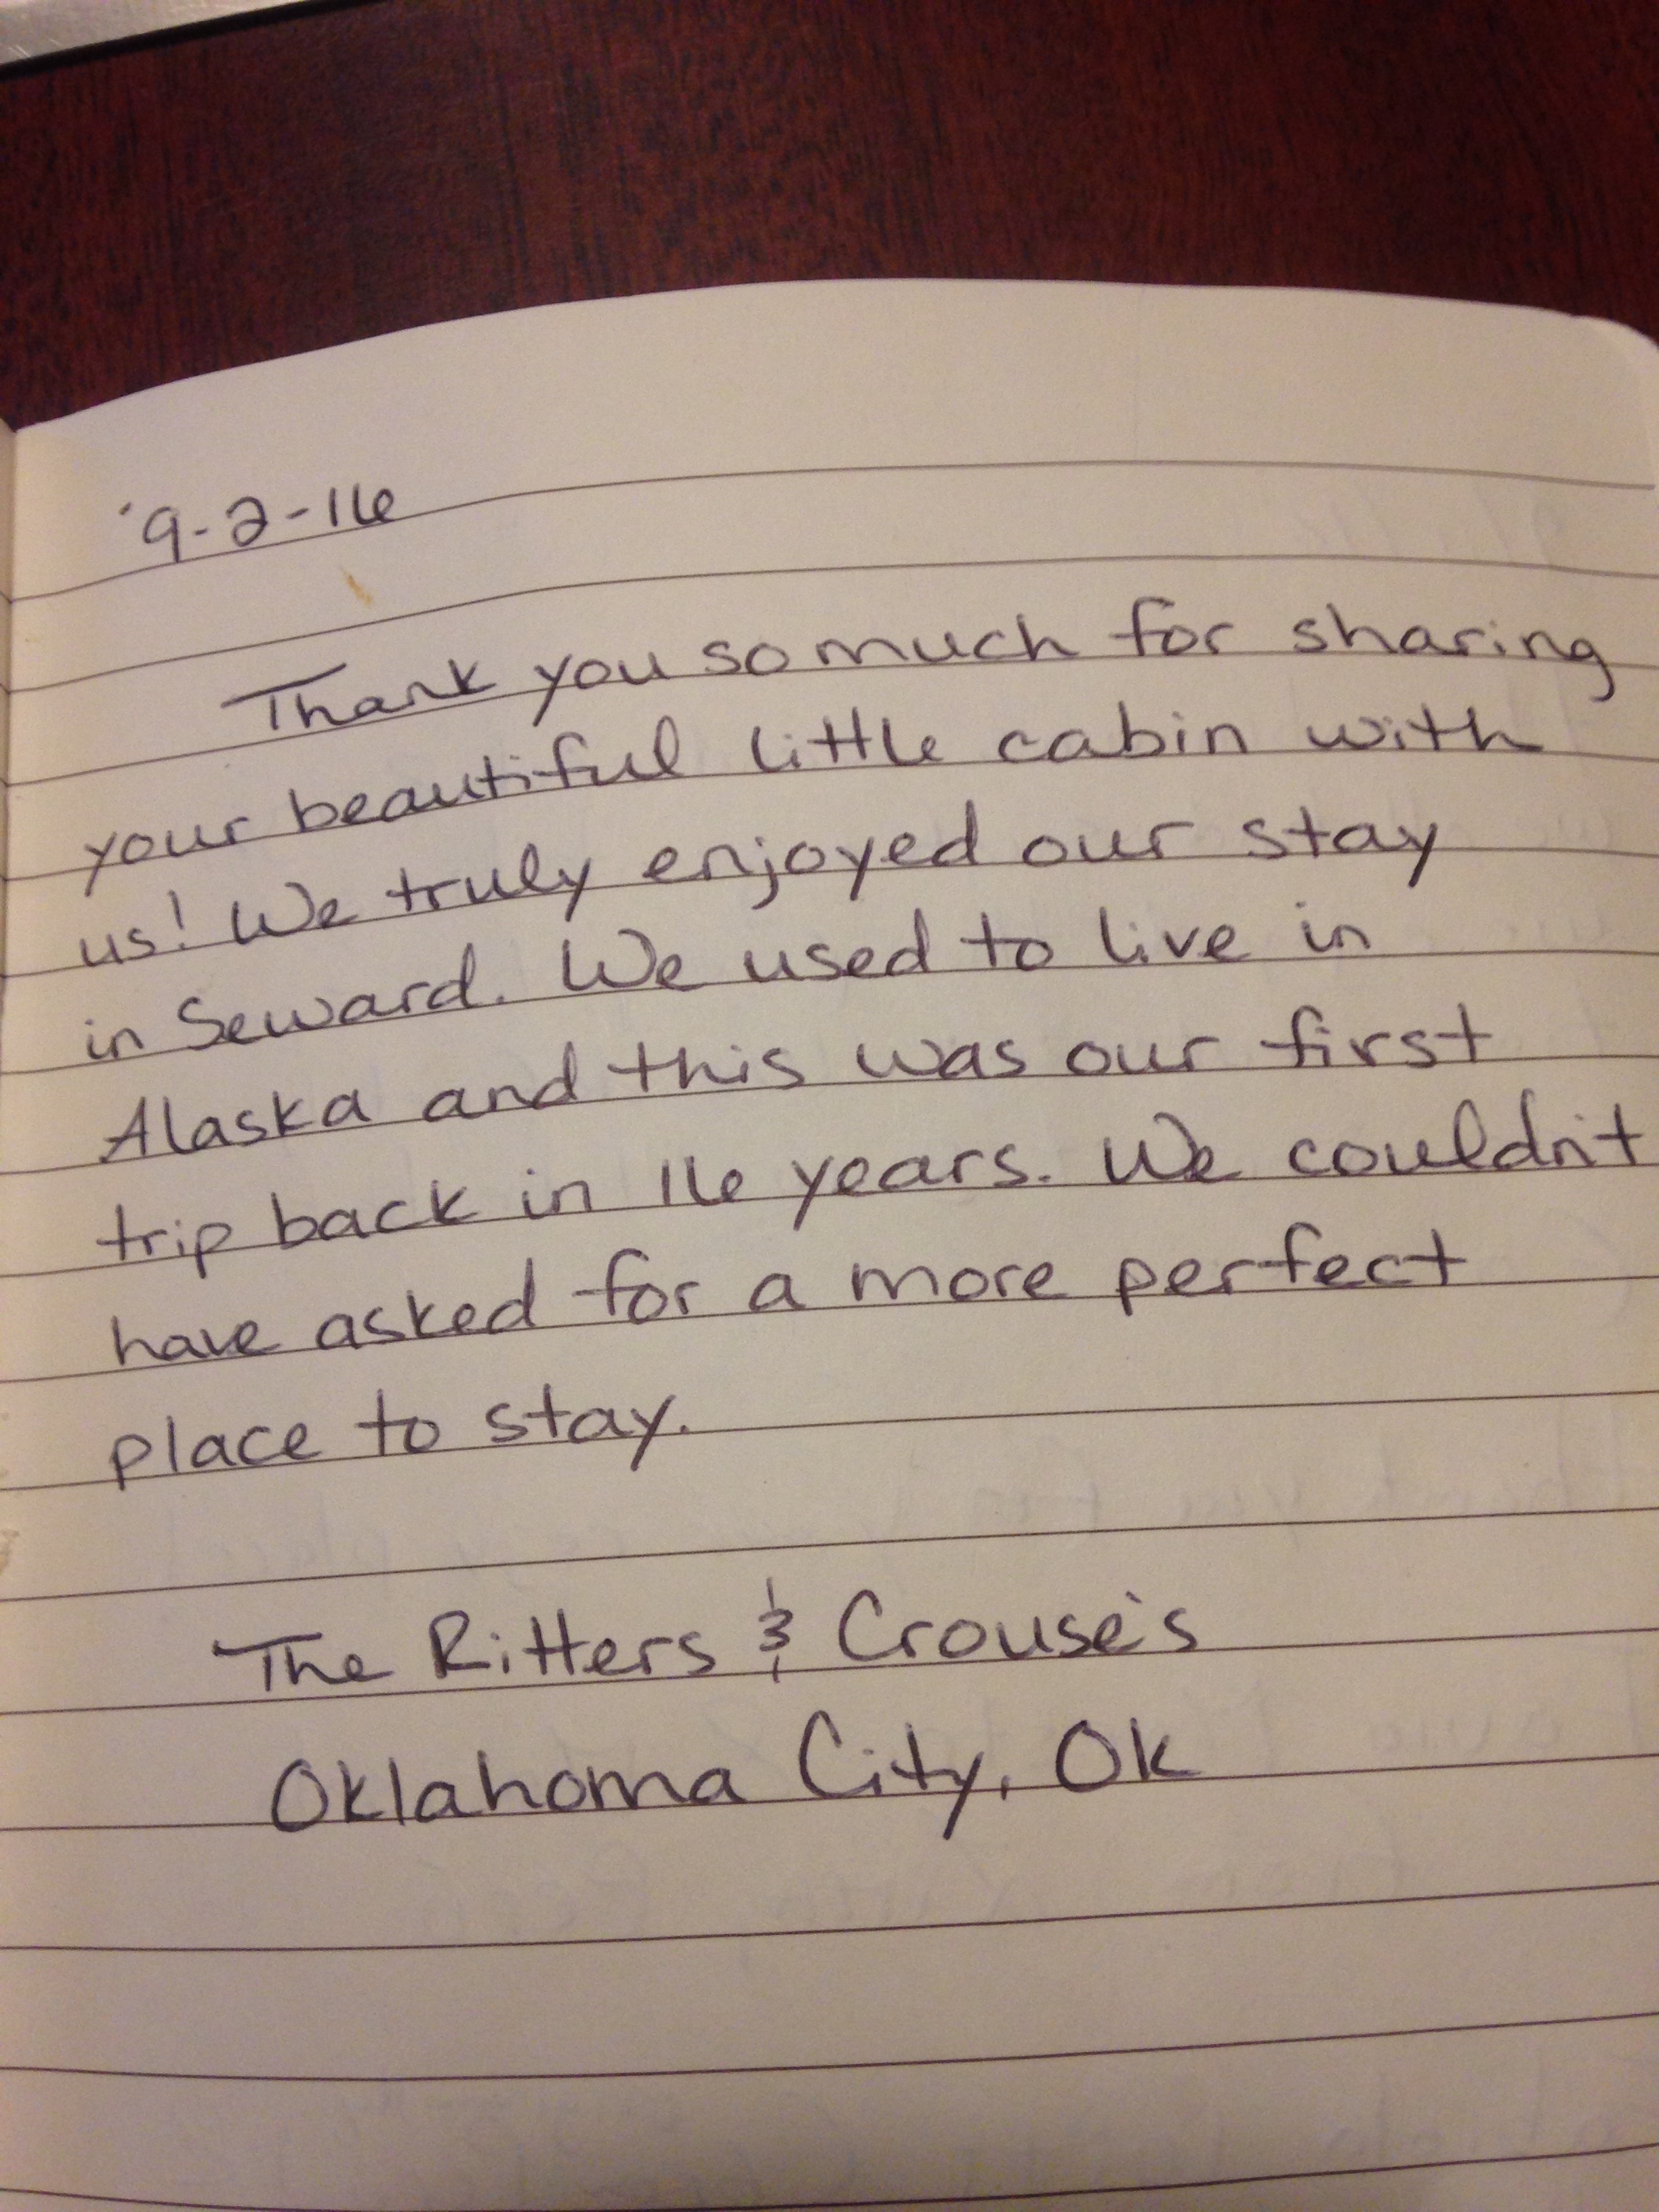 9-2-16
Thank you so much for sharing
your beautiful little cabin with
us! We truly enjoyed our stay
in Seward. We used to live in
Alaska and this was our first
trip back in 16 years. We couldn't
have asked for a more perfect
place to stay.
The Ritters & Crouse's
Oklahoma City, OK